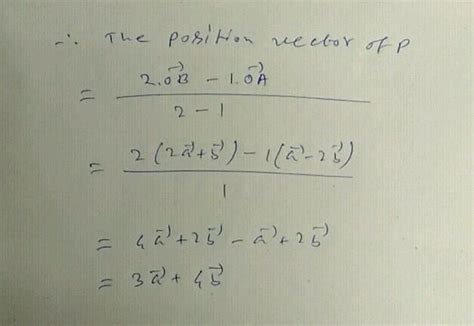 ∴ The position vector of P
= (2.O⃗B − 1.O⃗A) / (2 − 1)
= (2(2a⃗+b⃗) − 1(a⃗−2b⃗)) / 1
= 4a⃗+2b⃗ − a⃗+2b⃗
= 3a⃗ + 4b⃗